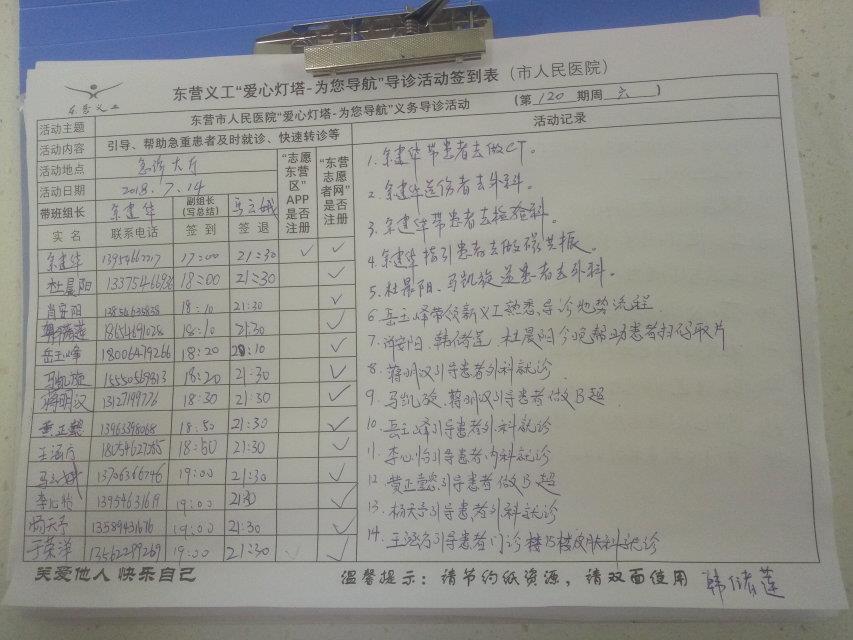 东营义工
东营义工“爱心灯塔-为您导航”导诊活动签到表（市人民医院）
活动主题 东营市人民医院“爱心灯塔-为您导航”义务导诊活动 （第120期周六）
活动内容 引导、帮助急重患者及时就诊、快速转诊等 活动记录
活动地点 急诊大厅 “志愿东营区”APP是否注册 “东营志愿者网”是否注册
活动日期 2018.7.14
带班组长 余建华 副组长（写总结） 马云娥
实名 联系电话 签到 签退
余建华 13954667217 17:00 21:30 ✓ ✓
杜晨阳 18:00 21:30 ✓
肖安阳 13854635838 18:10 21:30 ✓
韩储莲 18654691028 18:10 21:30 ✓
岳玉峰 18006479266 18:20 ✓
马凯旋 15550569813 18:20 21:30 ✓
蒋明汉 13127199776 18:30 21:30 ✓
黄正懿 13963398068 18:50 21:30 ✓
王涵 18:50 21:30 ✓
马云娥 13706366746 19:00 21:30 ✓
李心怡 13954631619 19:00 21:30 ✓
杨天予 13589431676 19:00 21:30 ✓
于荣洋 13562299269 19:00 21:30 ✓ ✓
1.余建华带患者去做CT。
2.余建华送伤者去外科。
3.余建华带患者去检验科。
4.余建华指引患者去做磁共振。
5.杜晨阳、马凯旋送患者去外科。
6.岳玉峰带领新义工熟悉导诊地势流程
7.肖安阳、韩储莲、杜晨阳今晚帮助患者扫码取片
8.蒋明汉引导患者外科就诊
9.马凯旋、蒋明汉引导患者做B超
10.岳玉峰引导患者外科就诊
11.李心怡引导患者内科就诊
12.黄正懿引导患者做B超
13.杨天予引导患者外科就诊
14.王涵引导患者门诊楼5楼皮肤科就诊
关爱他人 快乐自己 温馨提示：请节约纸资源，请双面使用 韩储莲